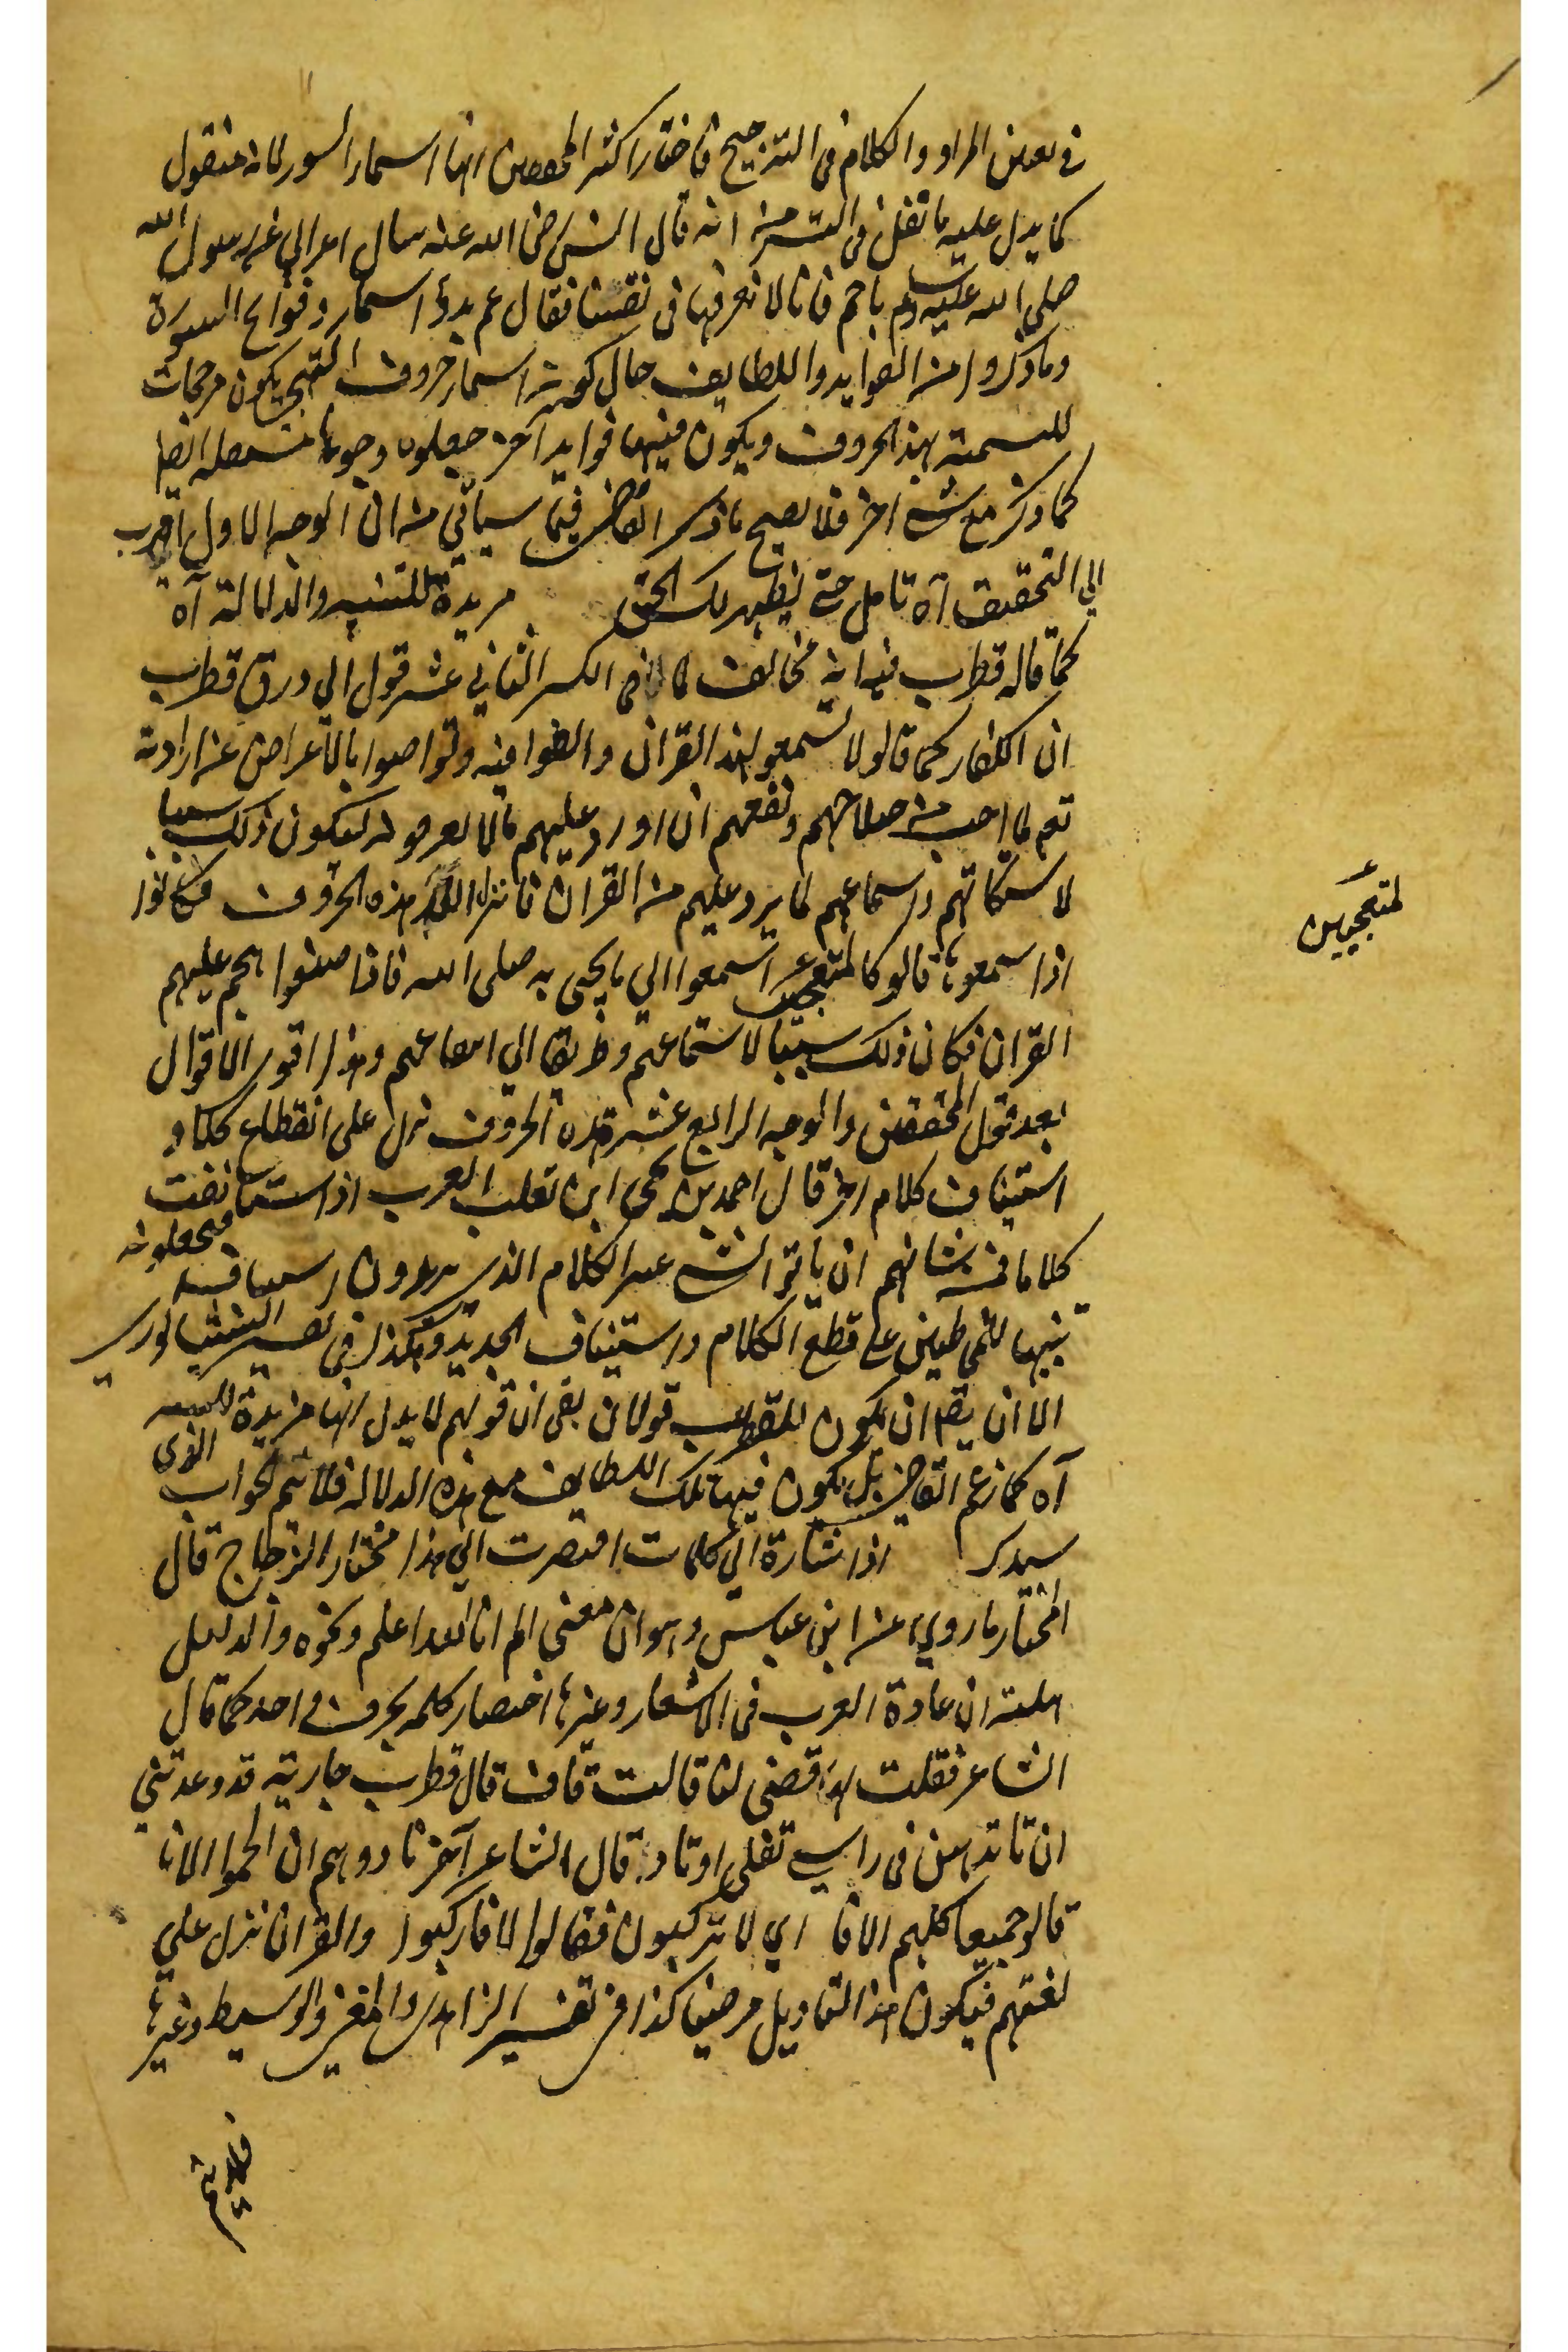 في تعين المراد والكلام في الترجيح فاختار اكثر المحققين انها اسماء السور لانه منقول
كما يدل عليه ما نقل في التيسير انه قال انس رضى الله عنه سال اعرابي عن رسول الله
صلى الله عليه وسلم ما حم فانا لا نعرفها في نفسنا فقال عم بدؤ اسماء وفواتح السورة
وما ذكروا من الفوايد واللطايف حال كونه اسماء حروف التهجي يكون مرجحات
للتسمية بهذ الحروف ويكون فيها فوايد اخر جعلوه وجوها مستقلة ايضا
كما ذكر مع شئ اخر فلا يصح ما ذكر القاضي فيما سيأتي من ان الوجه الاول اقرب
الي التحقيق آه تامل حتى ليظهر لك الحق مزيدة للتنبيه والدلالة آه
كما قاله قطرب فيه انه مخالف لما في الكسر الثاني عشر قول الي ورق قطرب
ان الكفار كما قالو لا تسمعو لهذ القران والغوا فيه وتواصوا بالاعراض عنه اراد الله
تعم لما احب من صلاحهم ونفعهم ان اورد عليهم ما لا يعرفونه ليكون ذلك سببا
لاسكاتهم واسماعهم لما يرد عليهم من القران فانزل الله هذه الحروف فكانوا
اذا سمعوها قالو كالمتعجبين استمعوا الي ما يجئ به صلى الله فاذا صغوا هجم عليهم
لمتعجبين
القران فكان ذلك سببا لاستماعهم وطريقا الي انتفاعهم وهذا اقوى الاقوال
بعد قول المحققين والوجه الرابع عشر هذه الحروف نزل على انقطاع كلام و
استيناف كلام اخر قال احمد بن يحيى ابن ثعلب العرب اذا استانفت
كلاما فمن شانهم ان ياتو الشئ غير الكلام الذي يريدون استينافه فيجعلونه
تنبيها للمخاطبين على قطع الكلام واستيناف الجديد وهكذا في تفسير النيشابوري
الا ان يقم ان يكون للقطرب قولان بقى ان قولهم لا يدل انها مزيدة للتنبيه
آه كما زعم القاضي بل يكون فيها تلك اللطايف مع هذه الدلالة فلا يتم الجواب الذي
سيذكر اذا اشارة الي كلمات اقتصرت الي هذا مختار الزجاج قال
المختار ما روي عن ابن عباس وهو ان معنى الم انا الله اعلم ونحوه والدليل
عليه ان عادة العرب في الاشعار وغيرها اختصار كلمه بحرف واحد كما قال
الشاعر فقلت لها قفي لنا قالت قاف قال قطرب جارية قد وعدتني
ان تاتد هن في راسي تفلي اوتا وقال الشاعر آخر نادوهم ان الجموا الاتا
قالو جميعا كلهم الافا اي لا تركبون فقالوا الا فاركبوا والقران نزل على
لغتهم فيكون هذا التاويل مرضيا كذا في تفسير الزاهدي والمغني والوسيط وغيرها